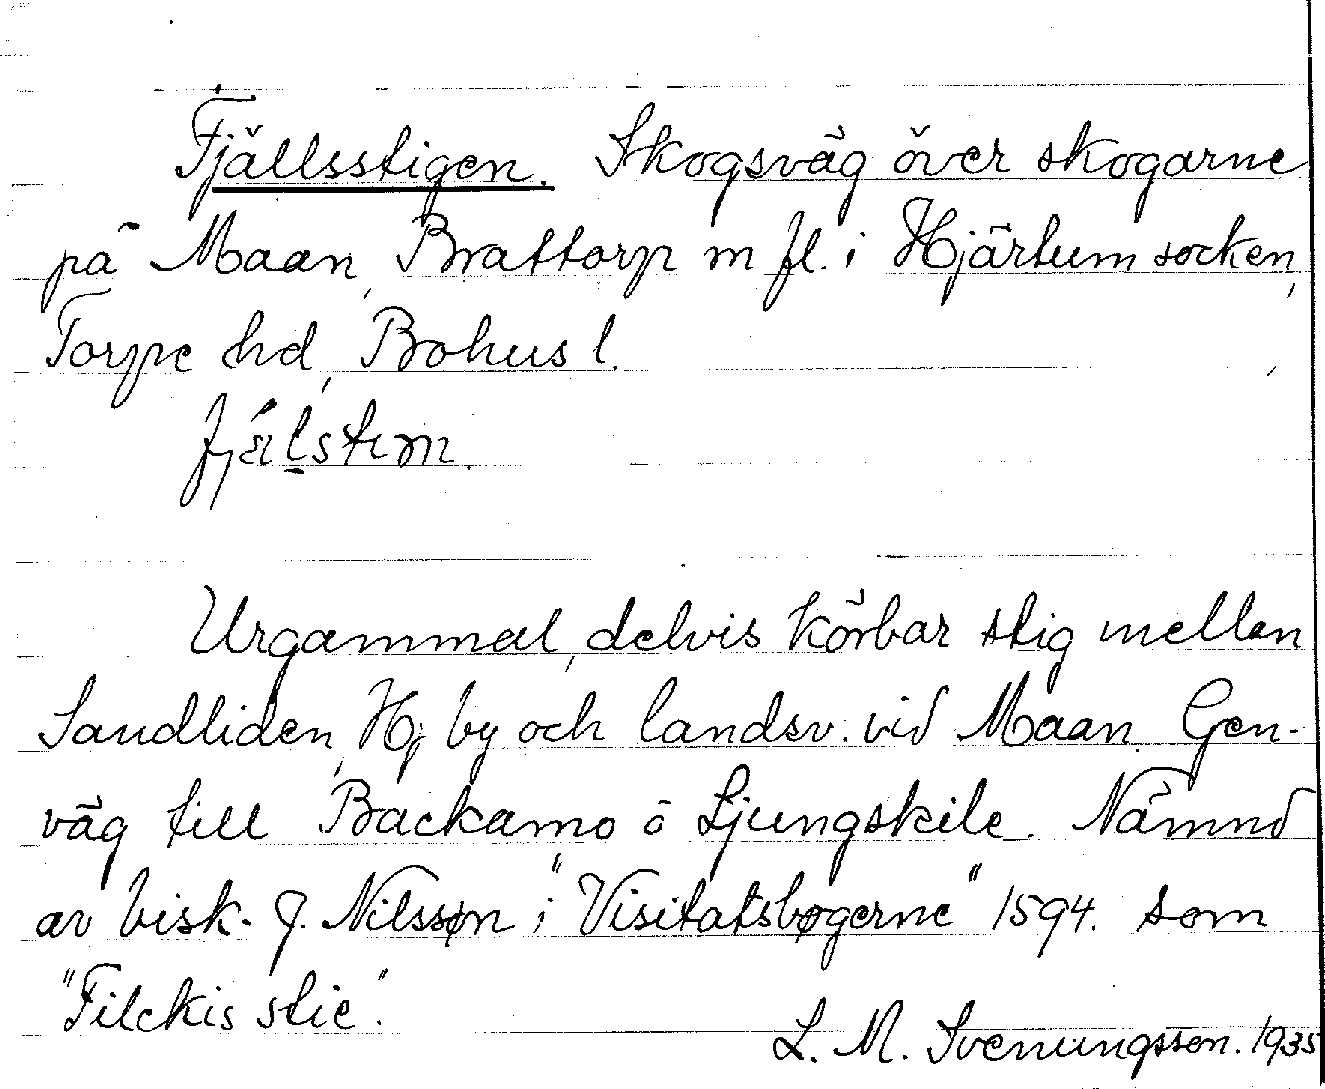 Fjällsstigen. Skogsväg över skogarne
på Maan, Brattorp m fl. i Hjärtum socken,
Torpe hd, Bohus l.
Urgammal, delvis körbar stig mellan
Sandliden, Hj by och landsv. vid Maan. Gen-
väg till Backamo o Ljungskile. Nämnd
av bisk. J. Nilssøn i "Visitatsbøgerne" 1594. som
"Filckis stie".
L. M. Svenungsson. 1935